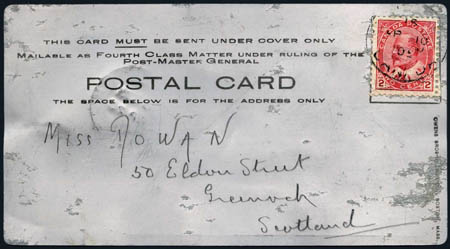 THIS CARD MUST BE SENT UNDER COVER ONLY
MAILABLE AS FOURTH CLASS MATTER UNDER RULING OF THE
POST-MASTER GENERAL
POSTAL CARD
THE SPACE BELOW IS FOR THE ADDRESS ONLY
2 CENTS 2
Miss DOWAN
50 Eldon Street
Greenock
Scotland
OWENS BROS
BOSTON, MASS.